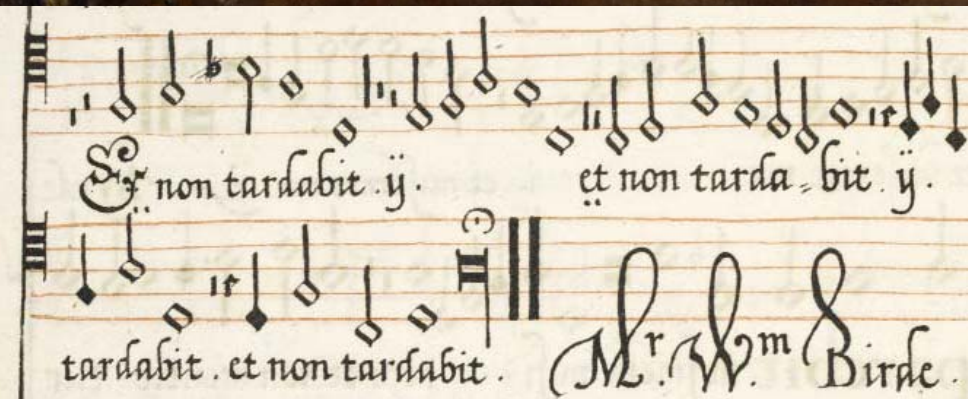 Et non tardabit ij. et non tarda-bit ij.
tardabit. et non tardabit. Mr. Wm Birde.